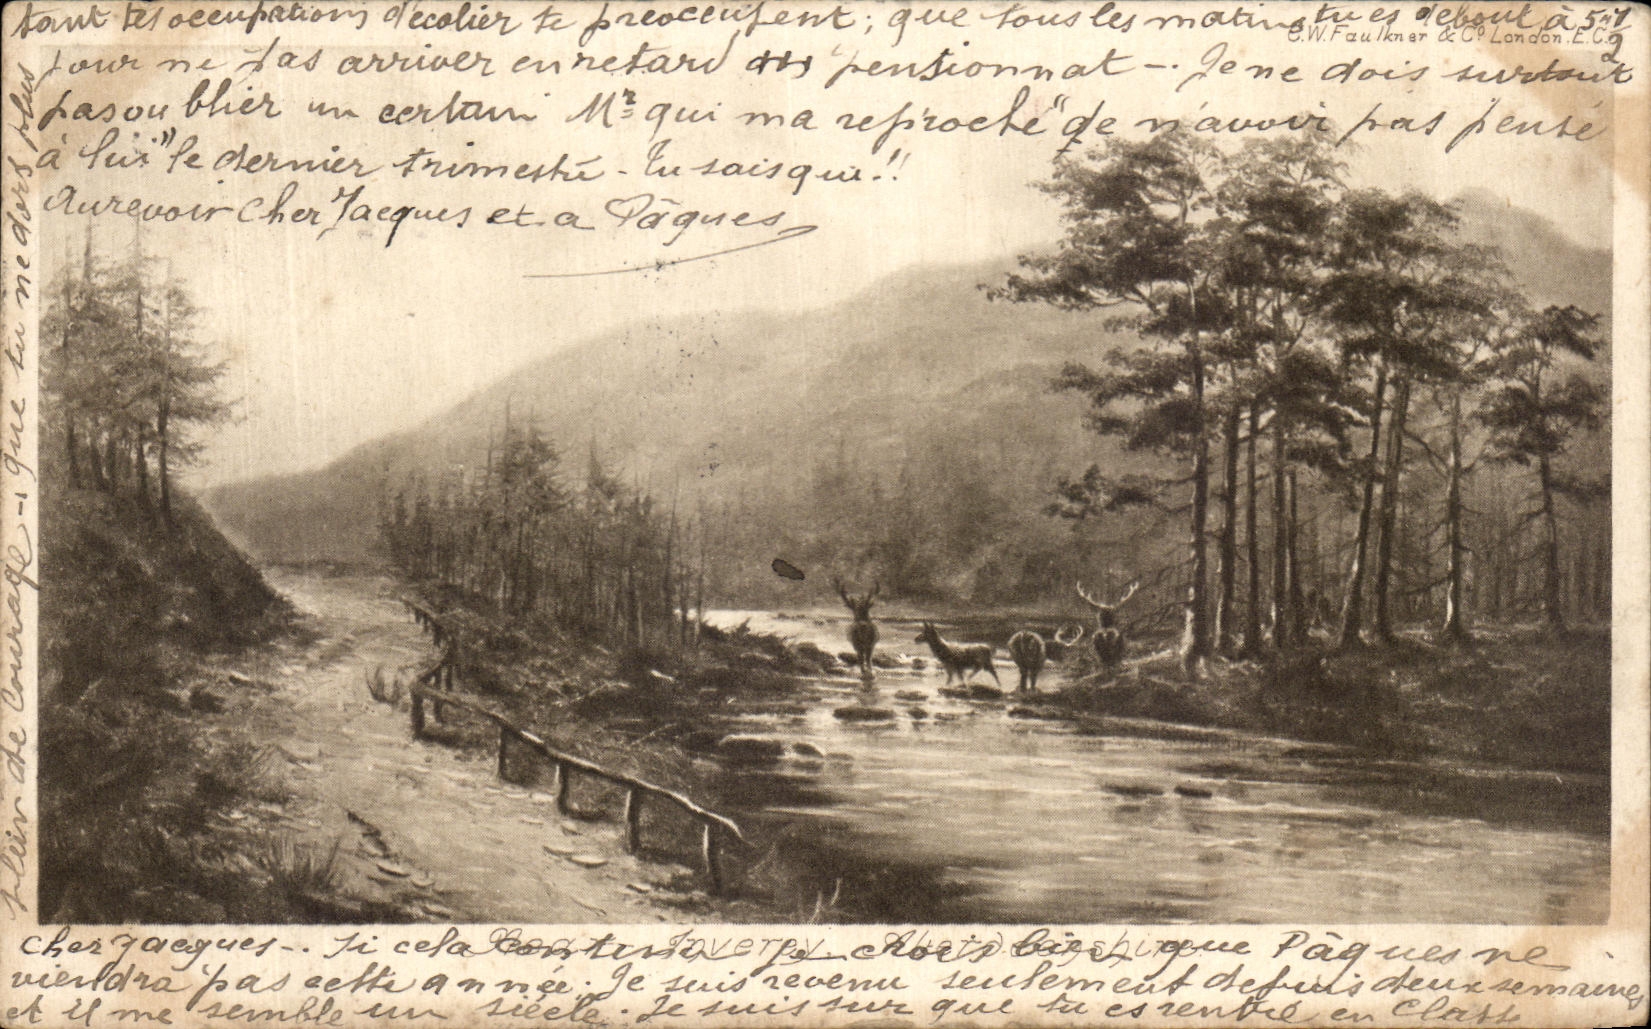 Cher Jacques -. Si cela continue je crois bien que Pâques ne
viendra pas cette année. Je suis revenu seulement depuis deux semaines
et il me semble un siècle. Je suis sur que tu es rentré en Classe
plein de Courage -, que tu ne dors plus
tant tes occupations d'écolier te préoccupent; que tous les matins tu es debout à 5 h 1/2
pour ne pas arriver en retard au "pensionnat -. Je ne dois surtout
pas oublier un certain Mr qui m'a reproché "de n'avoir pas pensé
à lui" le dernier trimestre - Tu sais qui!!
Aurevoir Cher Jacques et a Pâques
C.W. Faulkner & Co London. E.C.
Inverey Aberdeenshire